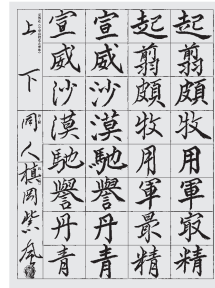 起翦頗牧用軍㝡精
起翦頗牧用軍最精
宣威沙漠馳譽丹青
宣威沙漠馳譽丹青
上 下 同人